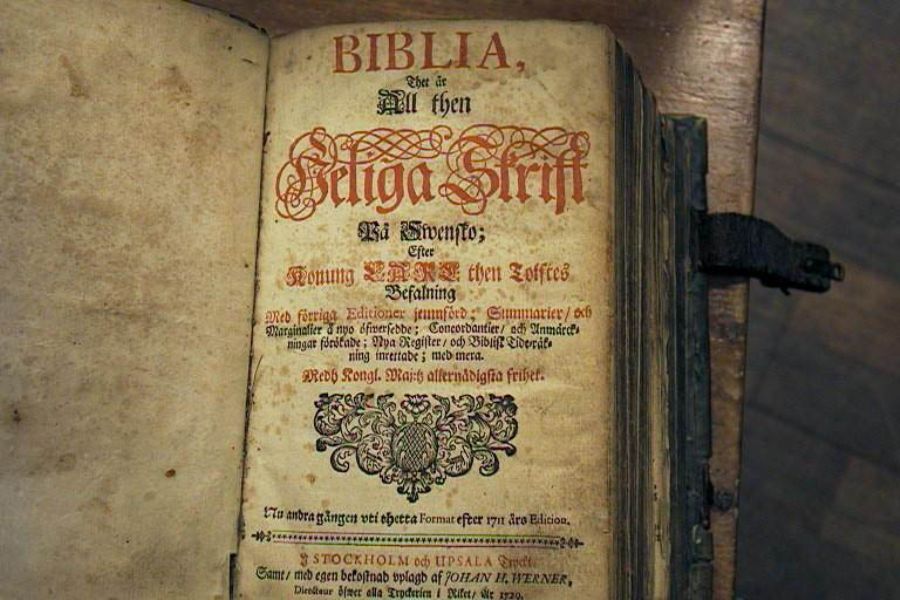 BIBLIA,
Thet är
All then
Heliga Skrift
På Swensko;
Efter
Konung CARL then Tolftes
Befalning
Med förriga Editioner jemnförd; Summarier/ och
Marginalier å nyo öfwersedde; Concordantier/ och Anmärck-
ningar förökade; Nya Register/ och Biblisk Tide-räk-
ning inrettade; med mera.
Medh Kongl. Maj:tz allernådigsta frihet.
Nu andra gången uti thetta Format efter 1711 års Edition.
I STOCKHOLM och UPSALA Tryckt.
Samt/ med egen bekostnad uplagd af JOHAN H. WERNER,
Directeur öfwer alla Tryckerien i Riket/ år 1720.